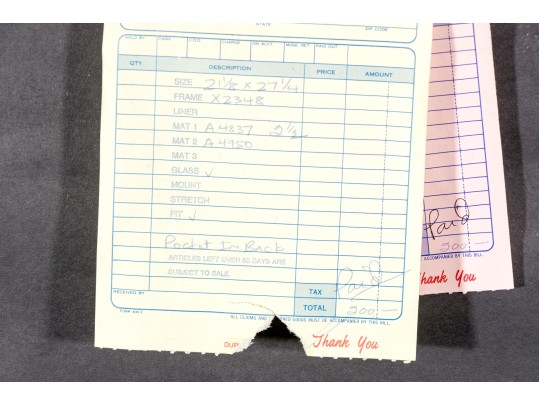 STATE ZIP CODE
SOLD BY CASH C.O.D. CHARGE ON ACCT. MDSE. RET. PAID OUT
QTY. DESCRIPTION PRICE AMOUNT
SIZE 21 1/8 X 27 1/4
FRAME X2348
LINER
MAT 1 A 4837 2 1/2
MAT 2 A 4950
MAT 3
GLASS ✓
MOUNT
STRETCH
FIT ✓
Pocket In Back
ARTICLES LEFT OVER 60 DAYS ARE
SUBJECT TO SALE.
RECEIVED BY TAX Paid
TOTAL 200 —
ALL CLAIMS AND GOODS MUST BE ACCOMPANIED BY THIS BILL.
DUP Thank You
Paid
200 —
ACCOMPANIED BY THIS BILL.
Thank You